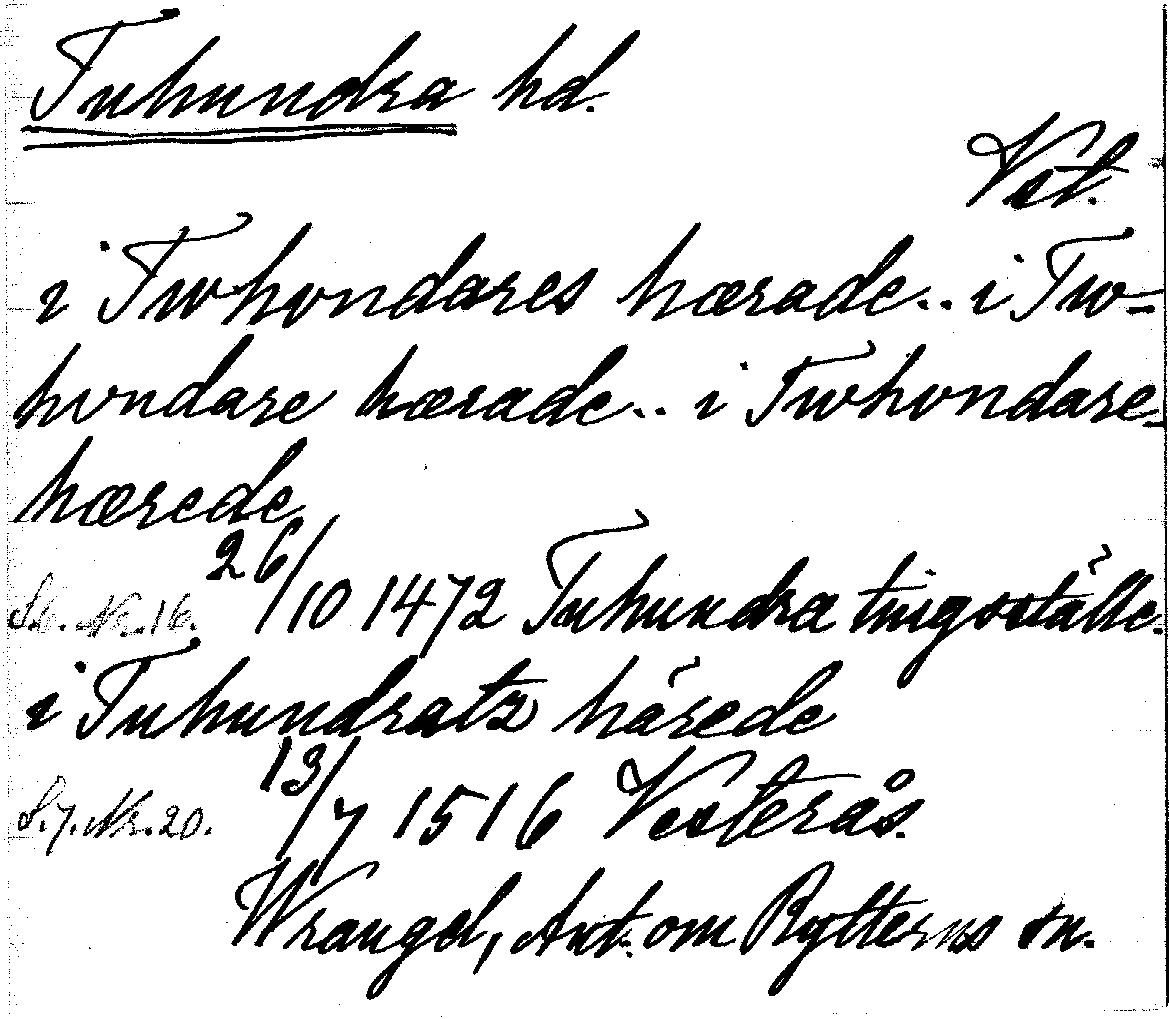 Tuhundra hd.
Vst.
i Twhvndares hærade.. i Tw-
hvndare hærade.. i Twhvndare-
hærede
S.6. Nr. 16. 26/10 1472 Tuhundra tingställe.
i Tuhundratz härede
S.7. Nr. 20. 13/7 1516 Vesterås.
Wrangel, Ant. om Rytterns sn.